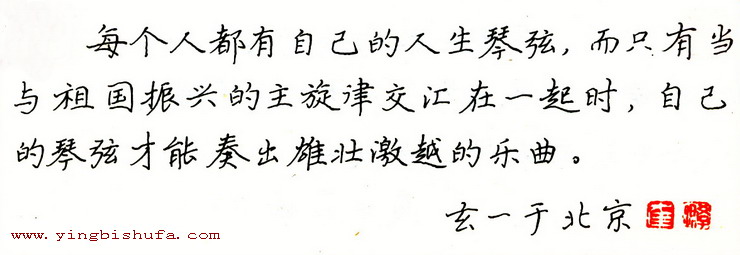 每个人都有自己的人生琴弦，而只有当
与祖国振兴的主旋律交汇在一起时，自己
的琴弦才能奏出雄壮激越的乐曲。
玄一于北京
www.yingbishufa.com